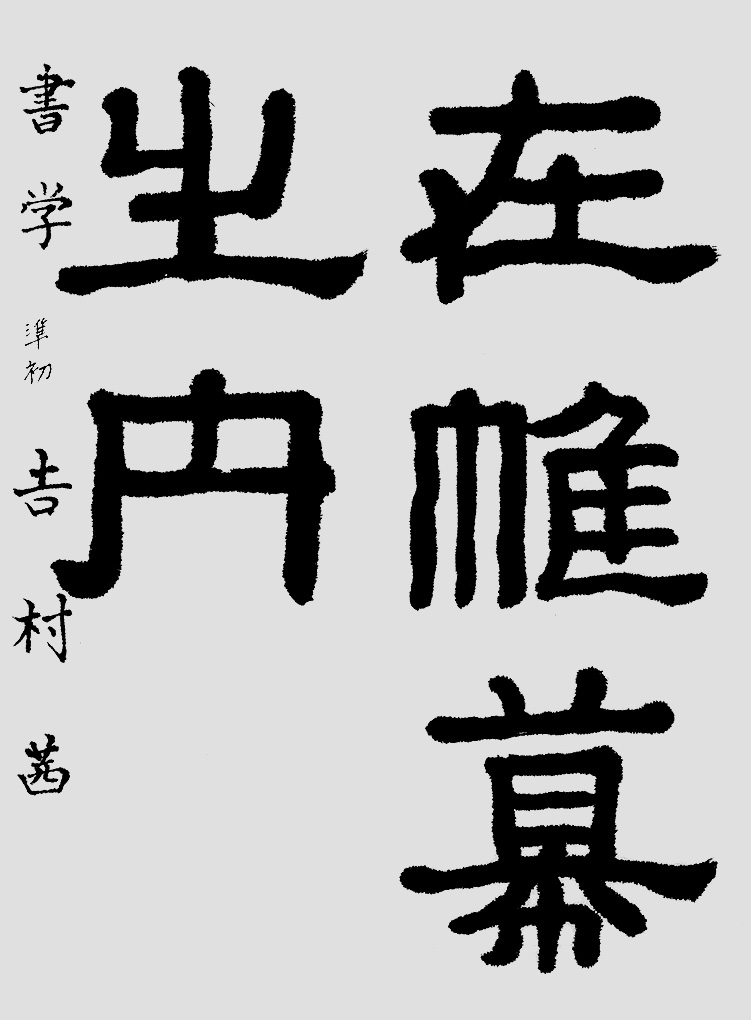 在帷幕
之内
書学 準初 吉村茜